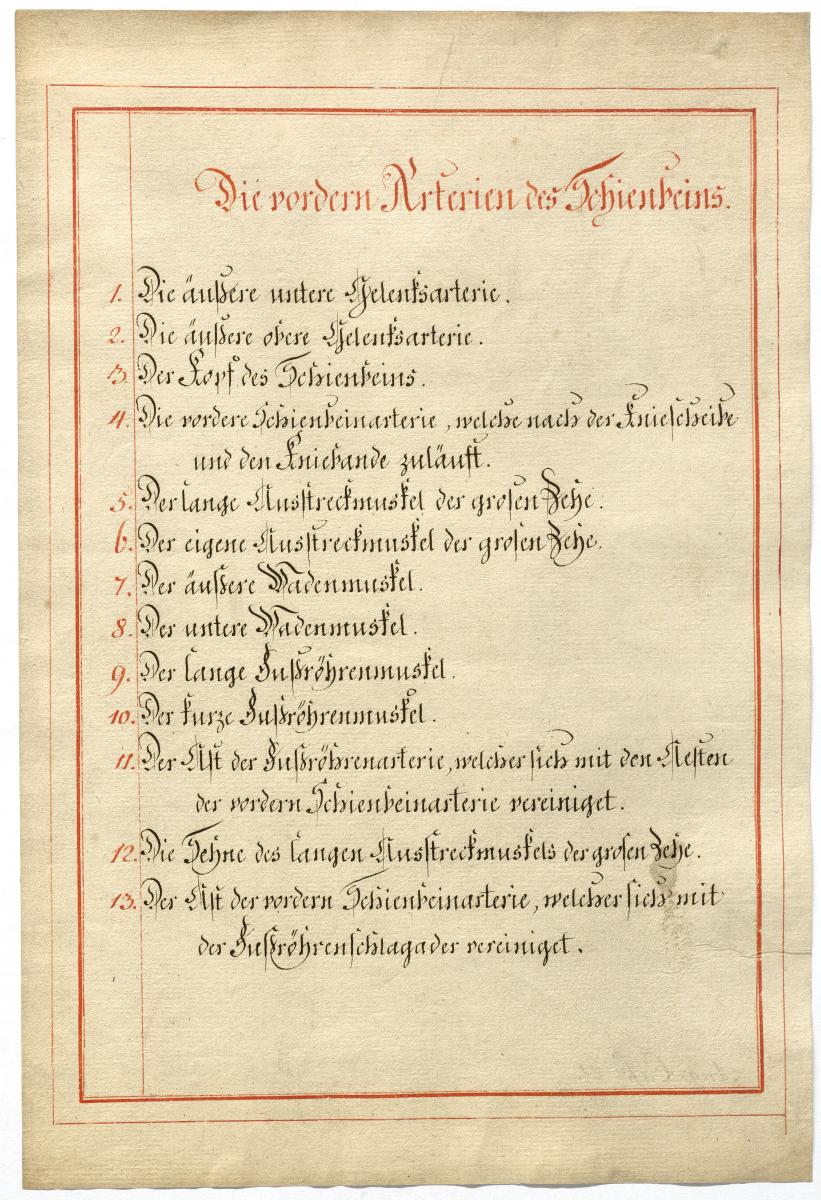 Die vordern Arterien des Schienbeins.
1. Die äußere untere Gelenksarterie.
2. Die äußere obere Gelenksarterie.
3. Der Kopf des Schienbeins.
4. Die vordere Schienbeinarterie, welche nach der Kniescheibe
und den Kniebande zuläuft.
5. Der lange Ausstreckmuskel der grosen Zehe.
6. Der eigene Ausstreckmuskel der grosen Zehe.
7. Der äußere Wadenmuskel.
8. Der untere Wadenmuskel.
9. Der lange Fußröhrenmuskel.
10. Der kurze Fußröhrenmuskel.
11. Der Ast der Fußröhrenarterie, welcher sich mit den Aesten
der vordern Schienbeinarterie vereiniget.
12. Die Sehne des langen Ausstreckmuskels der grosen Zehe.
13. Der Ast der vordern Schienbeinarterie, welcher sich mit
der Fußröhrenschlagader vereiniget.